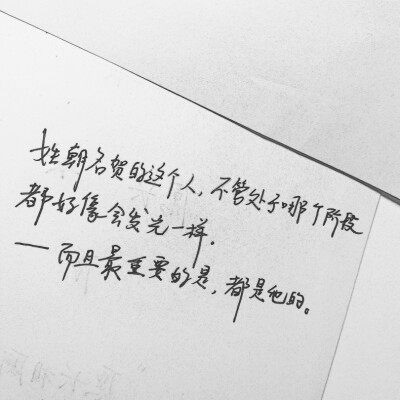 姓朝名贺的这个人，不管处于哪个阶段
都好像会发光一样．
——而且最重要的是，都是他的。